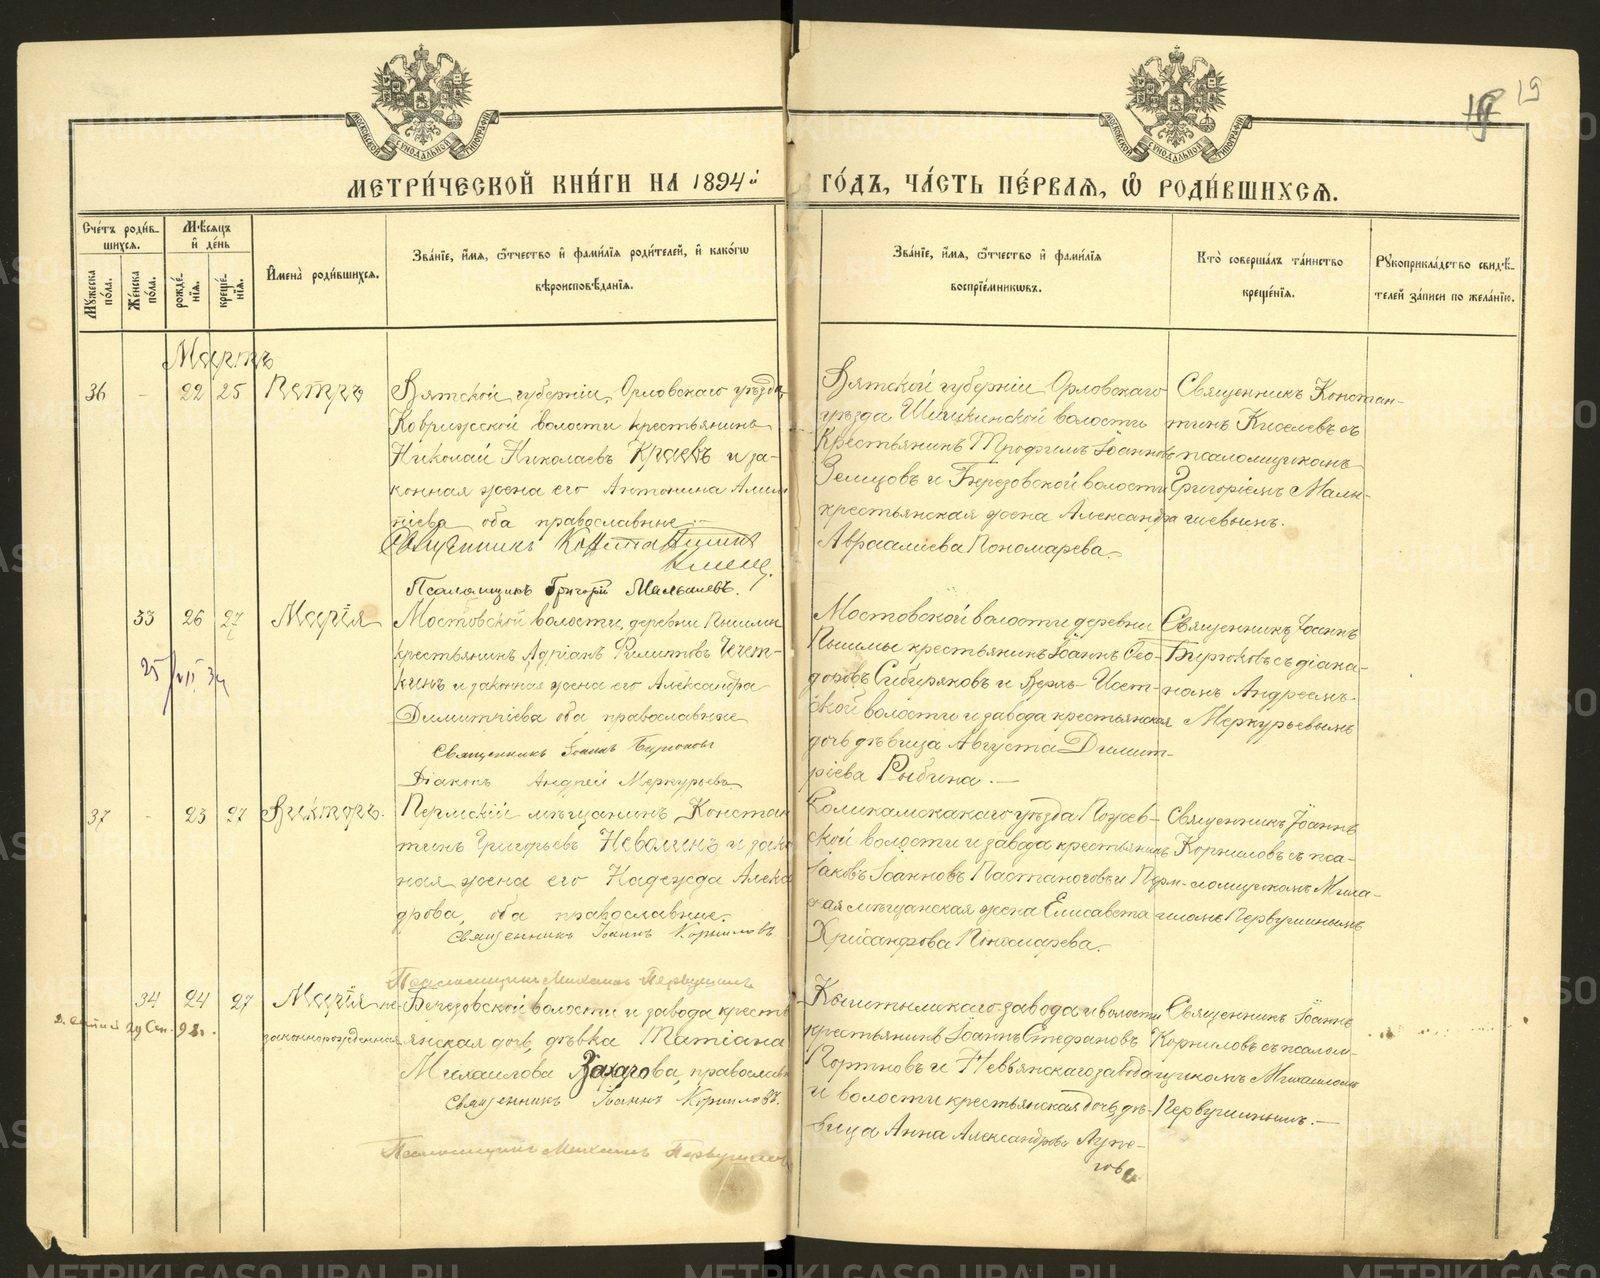 МОСКОВСКОЙ СѴНОДАЛЬНОЙ ТИПОГРАФІИ
МОСКОВСКОЙ СѴНОДАЛЬНОЙ ТИПОГРАФІИ
19
МЕТРИ́ЧЕСКОЙ КНИ́ГИ НА 1894й ГО́ДЪ, ЧА́СТЬ ПЕ́РВАЯ, Ѽ РОДИ́ВШИХСЯ.
Сче́тъ роди́в-
шихся.
Мѣ́сяцъ
и҆ де́нь
Мꙋ́жеска по́ла.
Же́нска по́ла.
рожде́-нїя.
креще́-нїя.
И҆мена̀ роди́вшихся.
Зва́нїе, и҆́мя, ѻ҆́тчество и҆ фами́лїя роди́телей, и҆ како́гѡ
вѣроисповѣ́данїя.
Зва́нїе, и҆́мя, ѻ҆́тчество и҆ фами́лїя
воспрїе́мникѡвъ.
Кто̀ соверша́лъ та́инство
креще́нїя.
Рꙋкоприкла́дство свидѣ́-
телей за́писи по жела́нїю.
Мартъ
36 - 22 25 Петръ
Вятской губерніи, Орловскаго уѣзда,
волости крестьянинъ
Николай Николаевъ Краевъ и за-
конная жена его Антонина
оба православные
Священникъ Константинъ
Псаломщикъ Григорій Малышевъ.
Вятской губерніи Орловскаго
уѣзда волости
крестьянинъ Трофимъ Іоанновъ
Земцовъ и Березовской волости
крестьянская жена Александра
Авраамиева Пономарева.
Священникъ Констан-
тинъ Киселевъ съ
псаломщикомъ
Григоріемъ Малы-
шевымъ.
33 26 27 Марія
25/VII 34
Мостовской волости, деревни Пышмы
крестьянинъ Адріанъ Филиповъ Чечет-
кинъ и законная жена его Александра
Димитріева оба православные
Священникъ Іоаннъ Бирюковъ
Діаконъ Андрей Меркурьевъ
Мостовской волости деревни
Пышмы крестьянинъ Іоаннъ Ѳео-
доровъ Сибиряковъ и Верхъ-Исет-
ской волости и завода крестьянская
дочь дѣвица Августа Димит-
ріева Рыбина.
Священникъ Іоаннъ
Бирюковъ съ діако-
номъ Андреемъ
Меркурьевымъ
37 - 23 27 Викторъ.
Пермскій мѣщанинъ Констан
тинъ Григорьевъ Неволинъ и зако
ная жена его Надежда Алекса
дрова, оба православные.
Священникъ Іоаннъ Корниловъ
Псаломщикъ Михаилъ Первушинъ
Соликамскаго уѣзда
ской волости и завода крестьянинъ
Іаковъ Іоанновъ и Перм-
ская мѣщанская жена Елисавета
Хрисанфова Пономарева.
Священникъ Іоаннъ
Корниловъ съ пса-
ломщикомъ Миха-
иломъ Первушинымъ
34 24 27 Марія не-
законнорожденная
Березовской волости и завода кресть
янская дочь, дѣвка Татіана
Михаилова Захарова, православн
Священникъ Іоаннъ Корниловъ.
Псаломщикъ Михаилъ Первушинъ
Кыштымскаго завода и волости
крестьянинъ Іоаннъ Стефановъ
Портновъ и Невьянскаго завода
и волости крестьянская дочь, дѣ-
вица Анна Александрова
Священникъ Іоаннъ
Корниловъ съ псалом-
щикомъ Михаиломъ
Первушинымъ.
METRIKI.GASO-URAL.RU